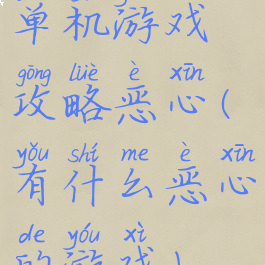 单机游戏
gōng lüè è xīn
攻略恶心(
yǒu shí me è xīn
有什么恶心
de yóu xì
的游戏)